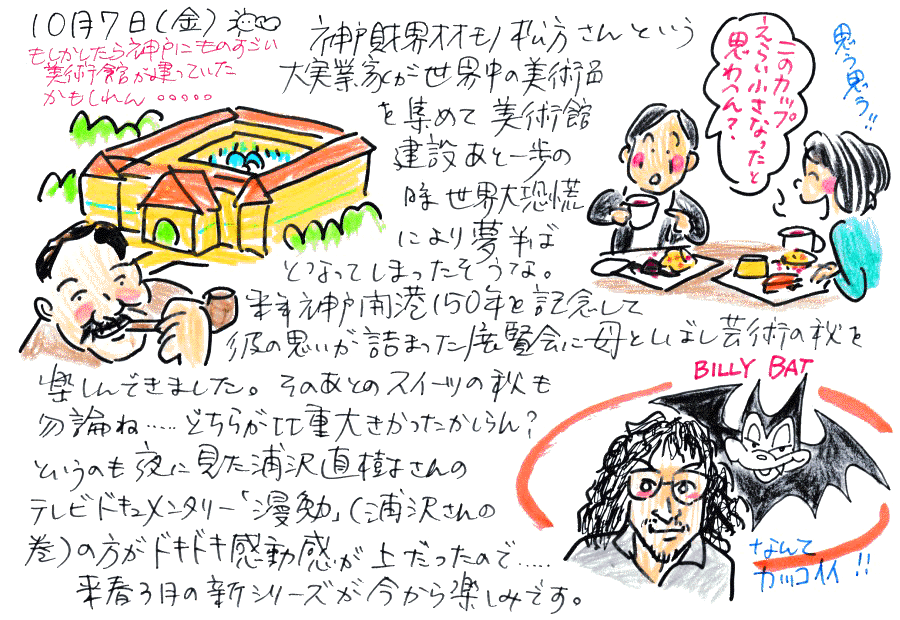 10月7日(金)
もしかしたら神戸にものすごい
美術館が建っていた
かもしれん・・・・・
神戸財界オオモノ松方さんという
大実業家が世界中の美術品
を集めて美術館
建設あと一歩の
時世界大恐慌
により夢半ば
となってしまったそうな。
来年神戸開港150年を記念して
彼の思いが詰まった展覧会に母としばし芸術の秋を
楽しんできました。そのあとのスイーツの秋も
勿論ね・・・・・どちらが比重大きかったかしらん?
というのも夜に見た浦沢直樹さんの
テレビドキュメンタリー「漫勉」(浦沢さんの
巻)の方がドキドキ感動感が上だったので・・・・・
来春3月の新シリーズが今から楽しみです。
このカップ
えらい小さなったと
思わへん?
思う思う!!
BILLY BAT
なんて
カッコイイ!!